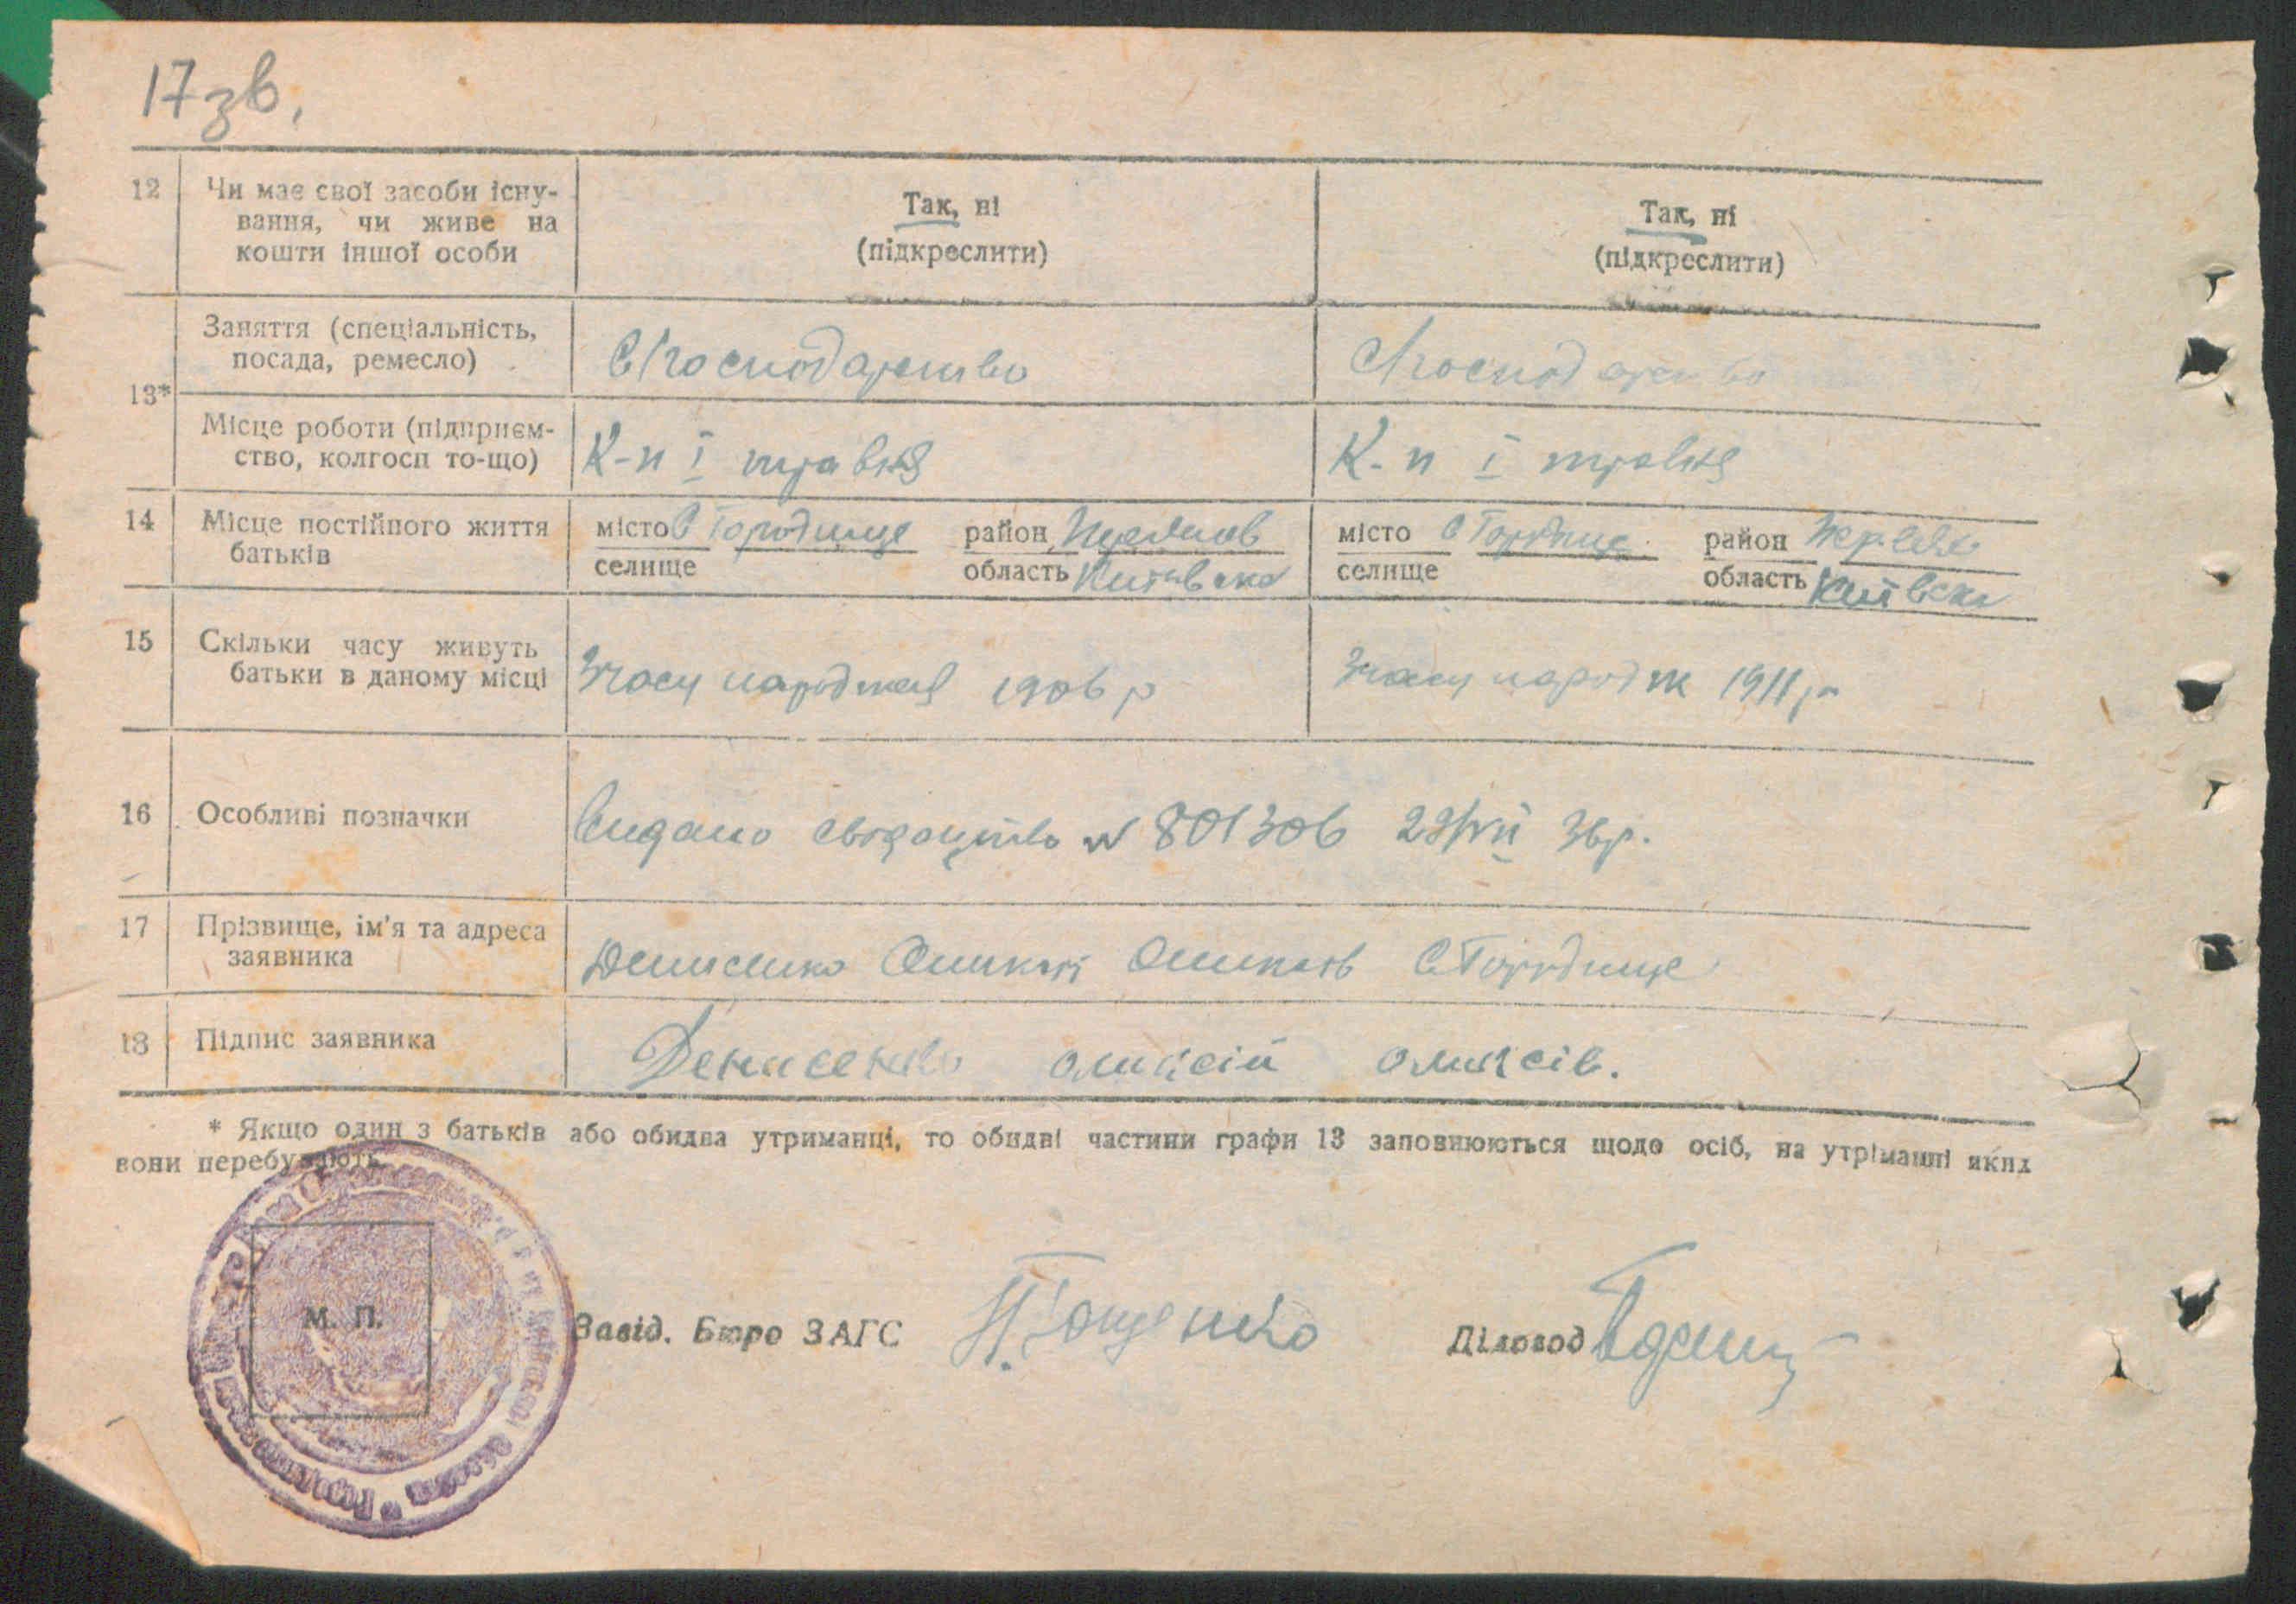 17 зв.
12 Чи має свої засоби існу-
вання, чи живе на
кошти іншої особи
Так, ні
(підкреслити)
Так, ні
(підкреслити)
13*
Заняття (спеціальність,
посада, ремесло)
С/господарство
С/господарство
Місце роботи (підприєм-
ство, колгосп то-що)
К-п І травня
К-п І травня
14 Місце постійного життя
батьків
місто С Городище район
селище область Київська
місто С Городище район
селище область Київська
15 Скільки часу живуть
батьки в даному місці
З часу народження 1906 р
З часу народж 1911 р
16 Особливі позначки
Видано свідоцтво № 801306 29/VII 36 р.
17 Прізвище, ім'я та адреса
заявника
Денисенко Олексій С Городище
18 Підпис заявника
Денисенко олексій олексів.
* Якщо один з батьків або обидва утриманці, то обидві частини графи 13 заповнюються щодо осіб, на утріманні яких
вони перебувають.
М. П.
Завід. Бюро ЗАГС
Діловод